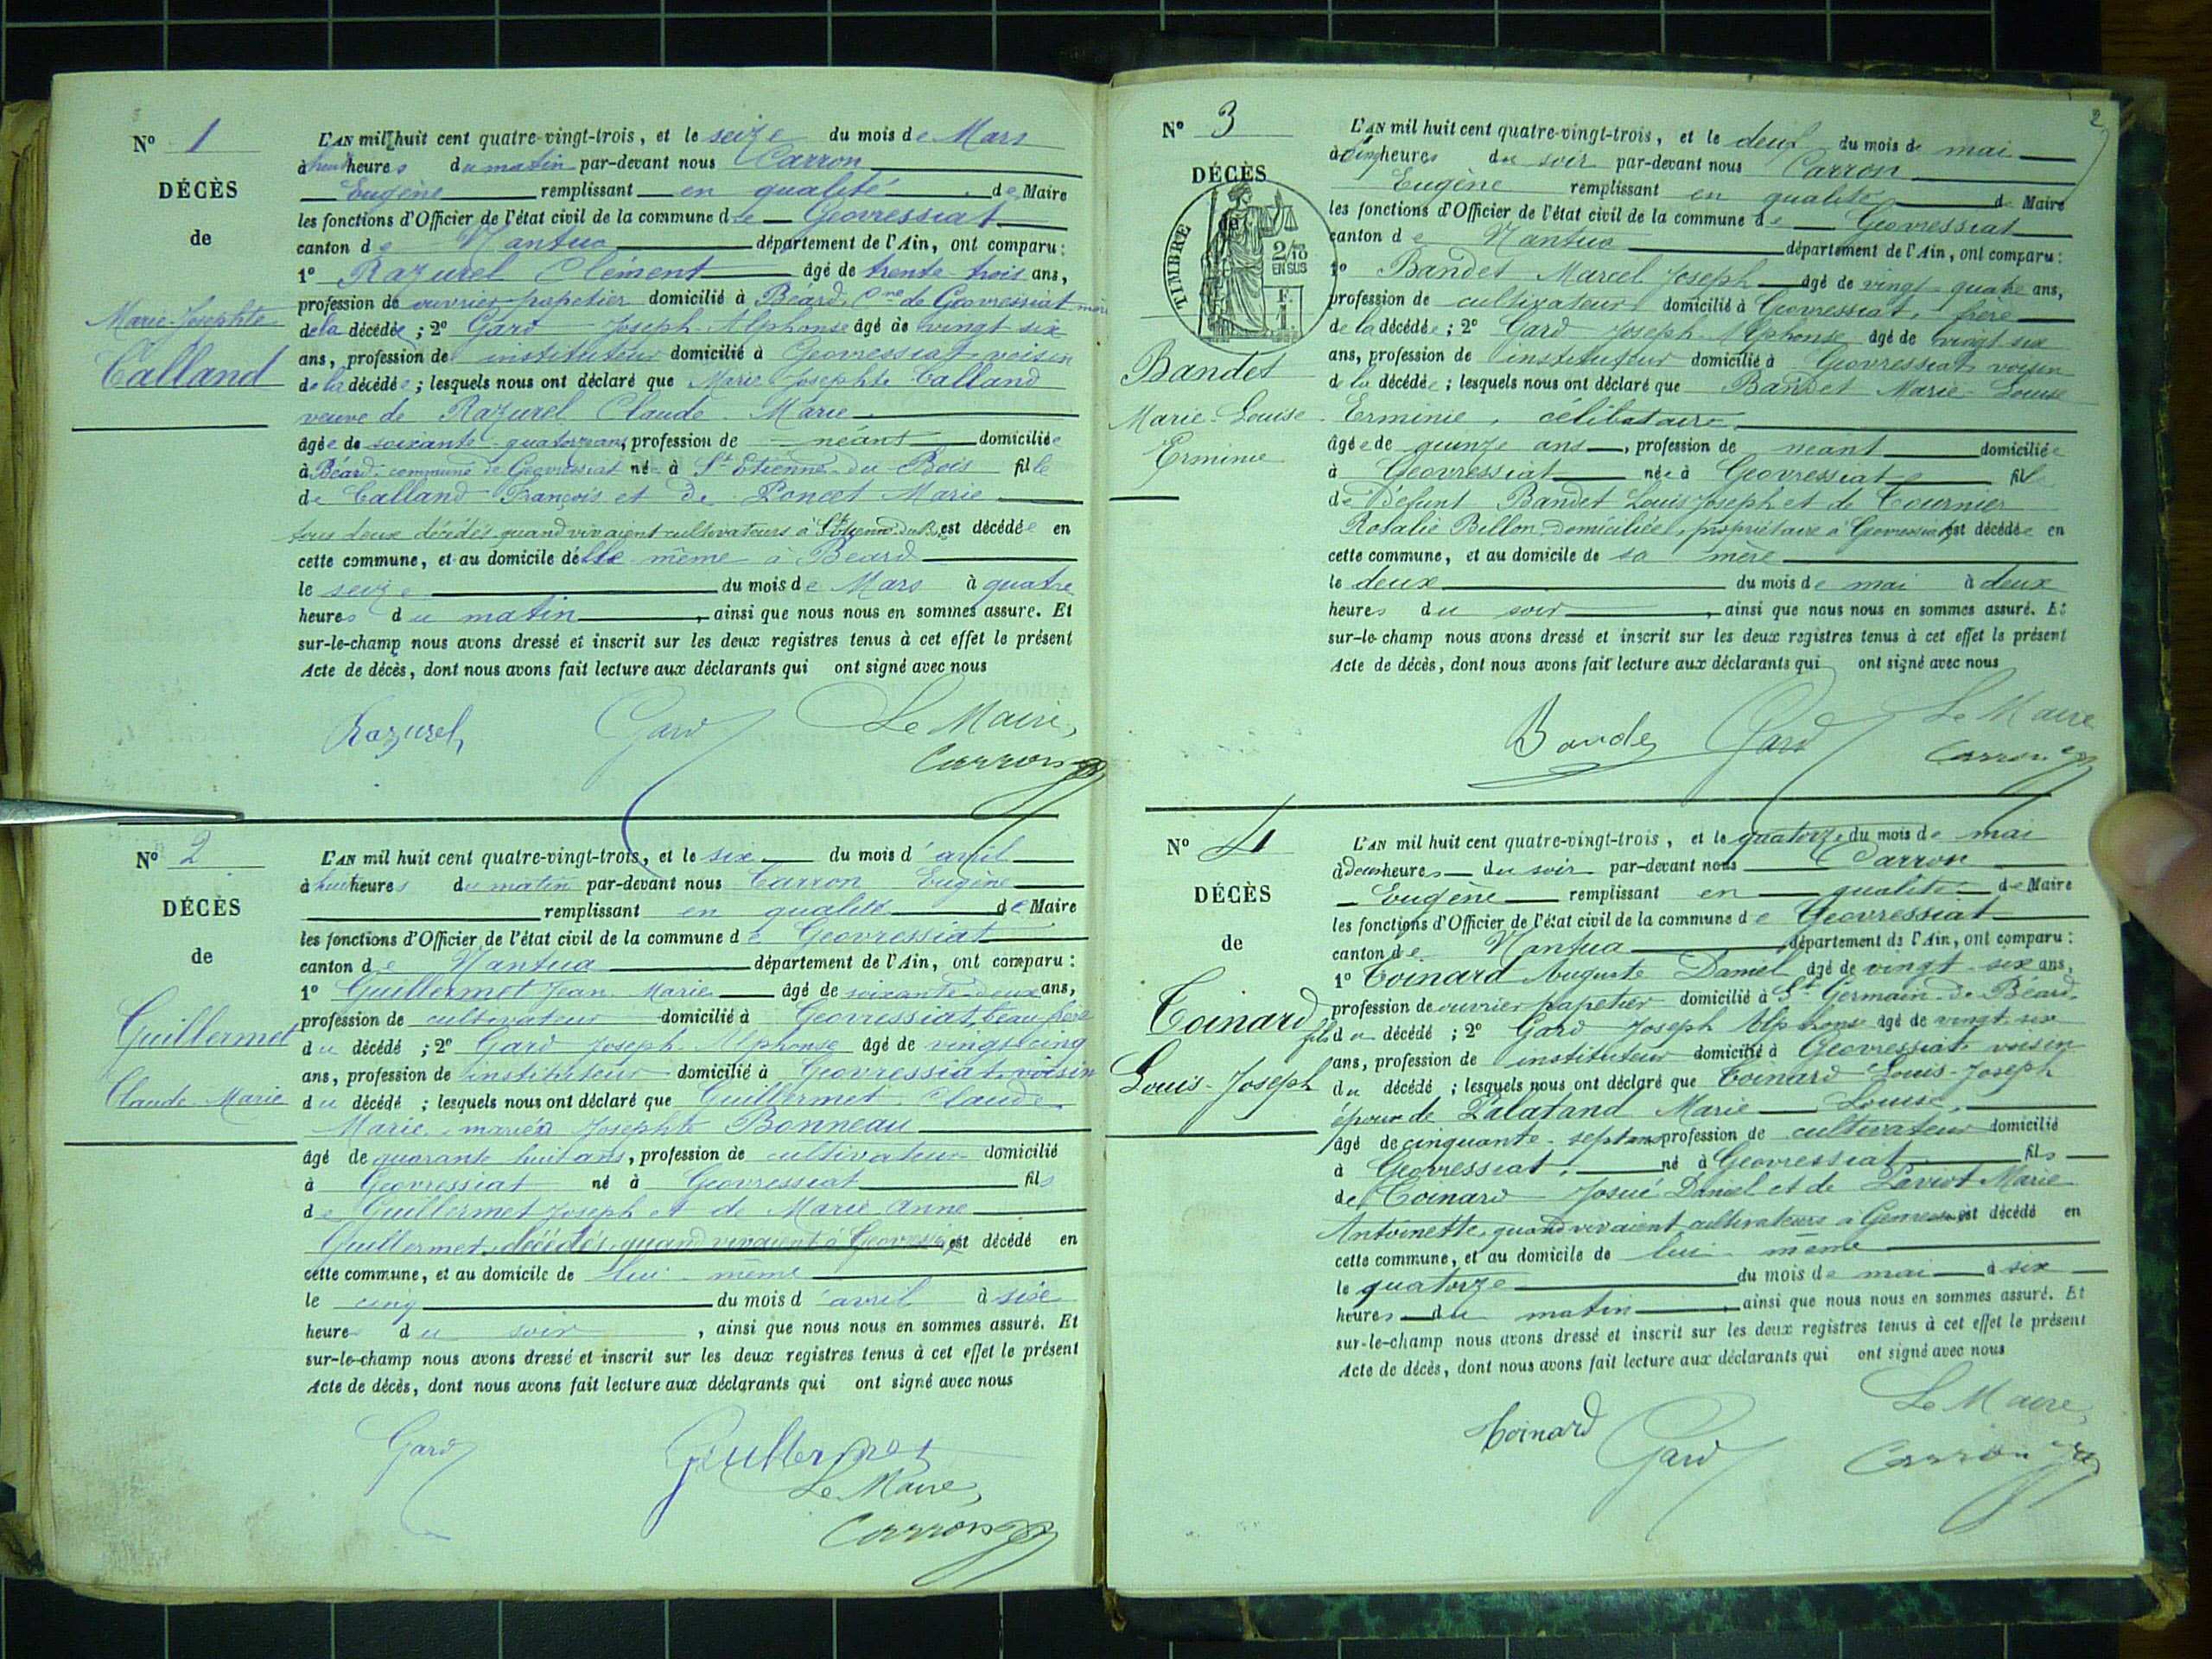 N° 1
DÉCÈS
de
Marie-Josephte
Calland
L'AN mil huit cent quatre-vingt-trois, et le seize du mois de Mars
à huit heures du matin par-devant nous Carron
Eugène remplissant en qualité de Maire
les fonctions d'Officier de l'état civil de la commune de Geovressiat
canton de Nantua département de l'Ain, ont comparu :
1° Razurel Clément âgé de trente trois ans,
profession de ouvrier papetier domicilié à Béard, Cne de Geovressiat
de la décédée ; 2° Gard Joseph Alphonse âgé de vingt six
ans, profession de instituteur domicilié à Geovressiat voisin
de la décédée ; lesquels nous ont déclaré que Marie Josephte Calland
veuve de Razurel Claude Marie
âgée de soixante-quatorze ans, profession de néant domiciliée
à Béard commune de Geovressiat né à St Etienne du Bois fille
de Calland François et de Poncet Marie
tous deux décédés quand vivaient cultivateurs à St Etienne du B. est décédée en
cette commune, et au domicile d'elle même à Béard
le seize du mois de Mars à quatre
heures du matin, ainsi que nous nous en sommes assuré. Et
sur-le-champ nous avons dressé et inscrit sur les deux registres tenus à cet effet le présent
Acte de décès, dont nous avons fait lecture aux déclarants qui ont signé avec nous
Razurel Gard Le Maire,
Carron
N° 2
DÉCÈS
de
Guillermet
Claude Marie
L'AN mil huit cent quatre-vingt-trois, et le six du mois d'avril
à huit heures du matin par-devant nous Carron Eugène
remplissant en qualité de Maire
les fonctions d'Officier de l'état civil de la commune de Geovressiat
canton de Nantua département de l'Ain, ont comparu :
1° Guillermet Jean Marie âgé de soixante-deux ans,
profession de cultivateur domicilié à Geovressiat, beau père
du décédé ; 2° Gard Joseph Alphonse âgé de vingt cinq
ans, profession de instituteur domicilié à Geovressiat voisin
du décédé ; lesquels nous ont déclaré que Guillermet Claude
Marie marié à Josephte Bonneau
âgé de quarante huit ans, profession de cultivateur domicilié
à Geovressiat né à Geovressiat fils
de Guillermet Joseph et de Marie Anne
Guillermet, décédés quand vivaient à Geovressiat est décédé en
cette commune, et au domicile de lui-même
le cinq du mois d'avril à six
heures du soir, ainsi que nous nous en sommes assuré. Et
sur-le-champ nous avons dressé et inscrit sur les deux registres tenus à cet effet le présent
Acte de décès, dont nous avons fait lecture aux déclarants qui ont signé avec nous
Gard Guillermet
Le Maire,
Carron
2
N° 3
DÉCÈS
de
TIMBRE
2/10
EN SUS
F.
1
Bandet
Marie-Louise
Erminie
L'AN mil huit cent quatre-vingt-trois, et le deux du mois de mai
à cinq heures du soir par-devant nous Carron
Eugène remplissant en qualité de Maire
les fonctions d'Officier de l'état civil de la commune de Geovressiat
canton de Nantua département de l'Ain, ont comparu :
1° Bandet Marcel Joseph âgé de vingt-quatre ans,
profession de cultivateur domicilié à Geovressiat, frère
de la décédée ; 2° Gard Joseph Alphonse âgé de vingt six
ans, profession de instituteur domicilié à Geovressiat voisin
de la décédée ; lesquels nous ont déclaré que Bandet Marie-Louise
Erminie, célibataire
âgée de quinze ans, profession de néant domiciliée
à Geovressiat née à Geovressiat fille
de Défunt Bandet Louis Joseph et de Tournier
Rosalie Billon domiciliée, propriétaire à Geovressiat est décédée en
cette commune, et au domicile de sa mère
le deux du mois de mai à deux
heures du soir, ainsi que nous nous en sommes assuré. Et
sur-le-champ nous avons dressé et inscrit sur les deux registres tenus à cet effet le présent
Acte de décès, dont nous avons fait lecture aux déclarants qui ont signé avec nous
Bandet Gard Le Maire
Carron
N° 4
DÉCÈS
de
Coinard
Louis-Joseph
L'AN mil huit cent quatre-vingt-trois, et le quatorze du mois de mai
à deux heures du soir par-devant nous Carron
Eugène remplissant en qualité de Maire
les fonctions d'Officier de l'état civil de la commune de Geovressiat
canton de Nantua département de l'Ain, ont comparu :
1° Coinard Auguste Daniel âgé de vingt-six ans,
profession de ouvrier papetier domicilié à St Germain de Béard,
fils du décédé ; 2° Gard Joseph Alphonse âgé de vingt six
ans, profession de instituteur domicilié à Geovressiat voisin
du décédé ; lesquels nous ont déclaré que Coinard Louis-Joseph
époux de Lalatand Marie Louise,
âgé de cinquante-sept ans profession de cultivateur domicilié
à Geovressiat, né à Geovressiat fils
de Coinard Josué Daniel et de Paviot Marie
Antoinette, quand vivaient cultivateurs à est décédé en
cette commune, et au domicile de lui-même
le quatorze du mois de mai à six
heures du matin, ainsi que nous nous en sommes assuré. Et
sur-le-champ nous avons dressé et inscrit sur les deux registres tenus à cet effet le présent
Acte de décès, dont nous avons fait lecture aux déclarants qui ont signé avec nous
Coinard Gard Le Maire,
Carron